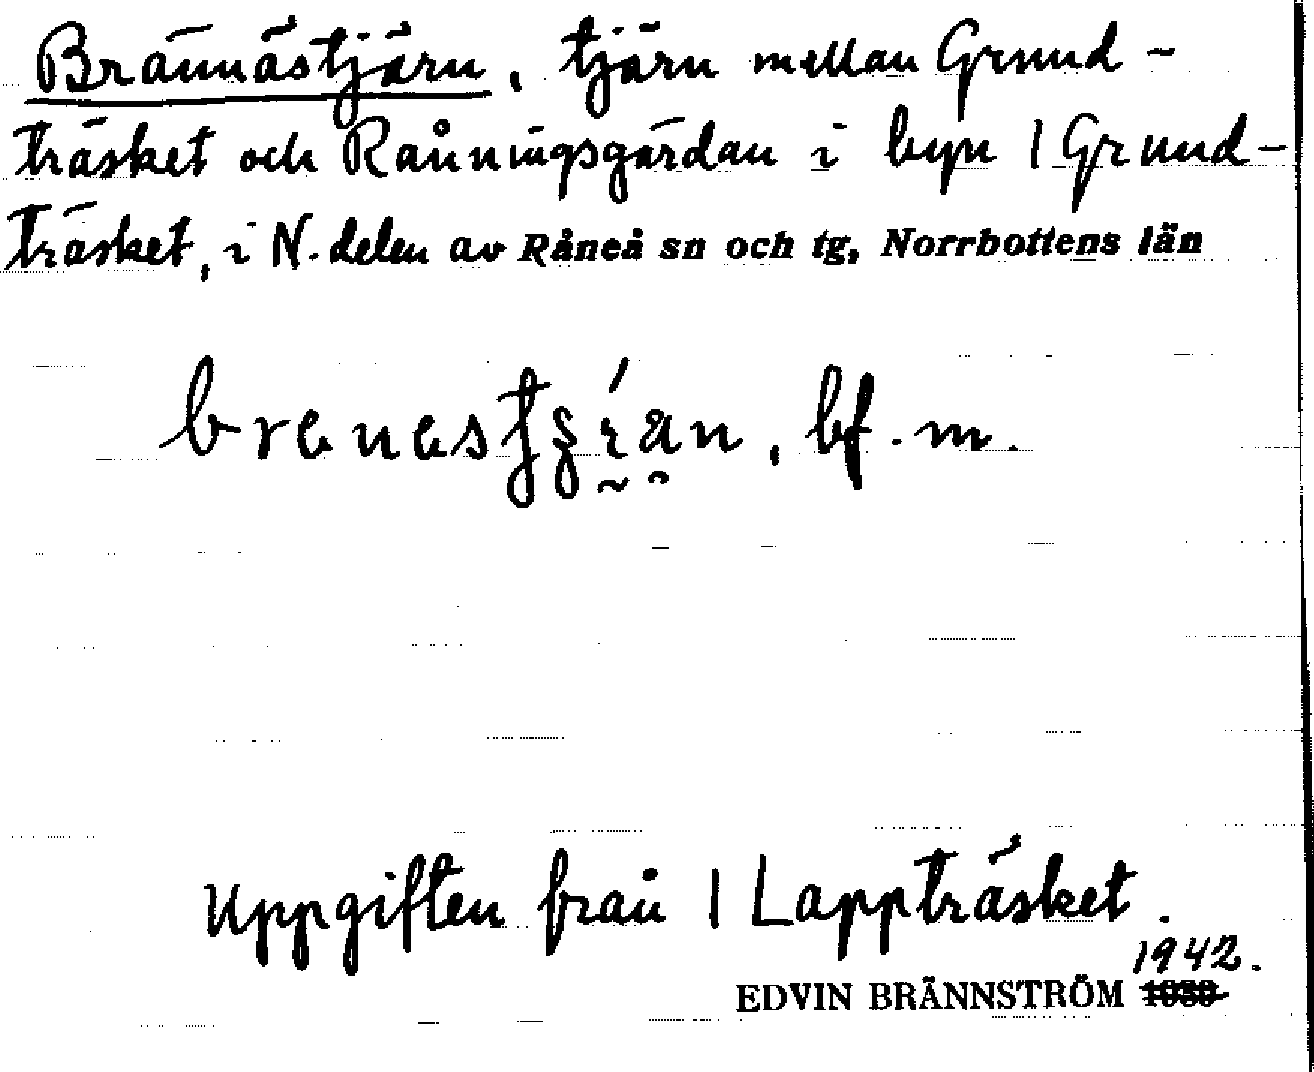 Brännästjärn, tjärn mellan Grund-
träsket och Råningsgärdan i byn 1 Grund-
träsket, i N. delen av Råneå sn och tg, Norrbottens län
bf. m.
Uppgiften från 1 Lappträsket.
1942.
EDVIN BRÄNNSTRÖM 1930